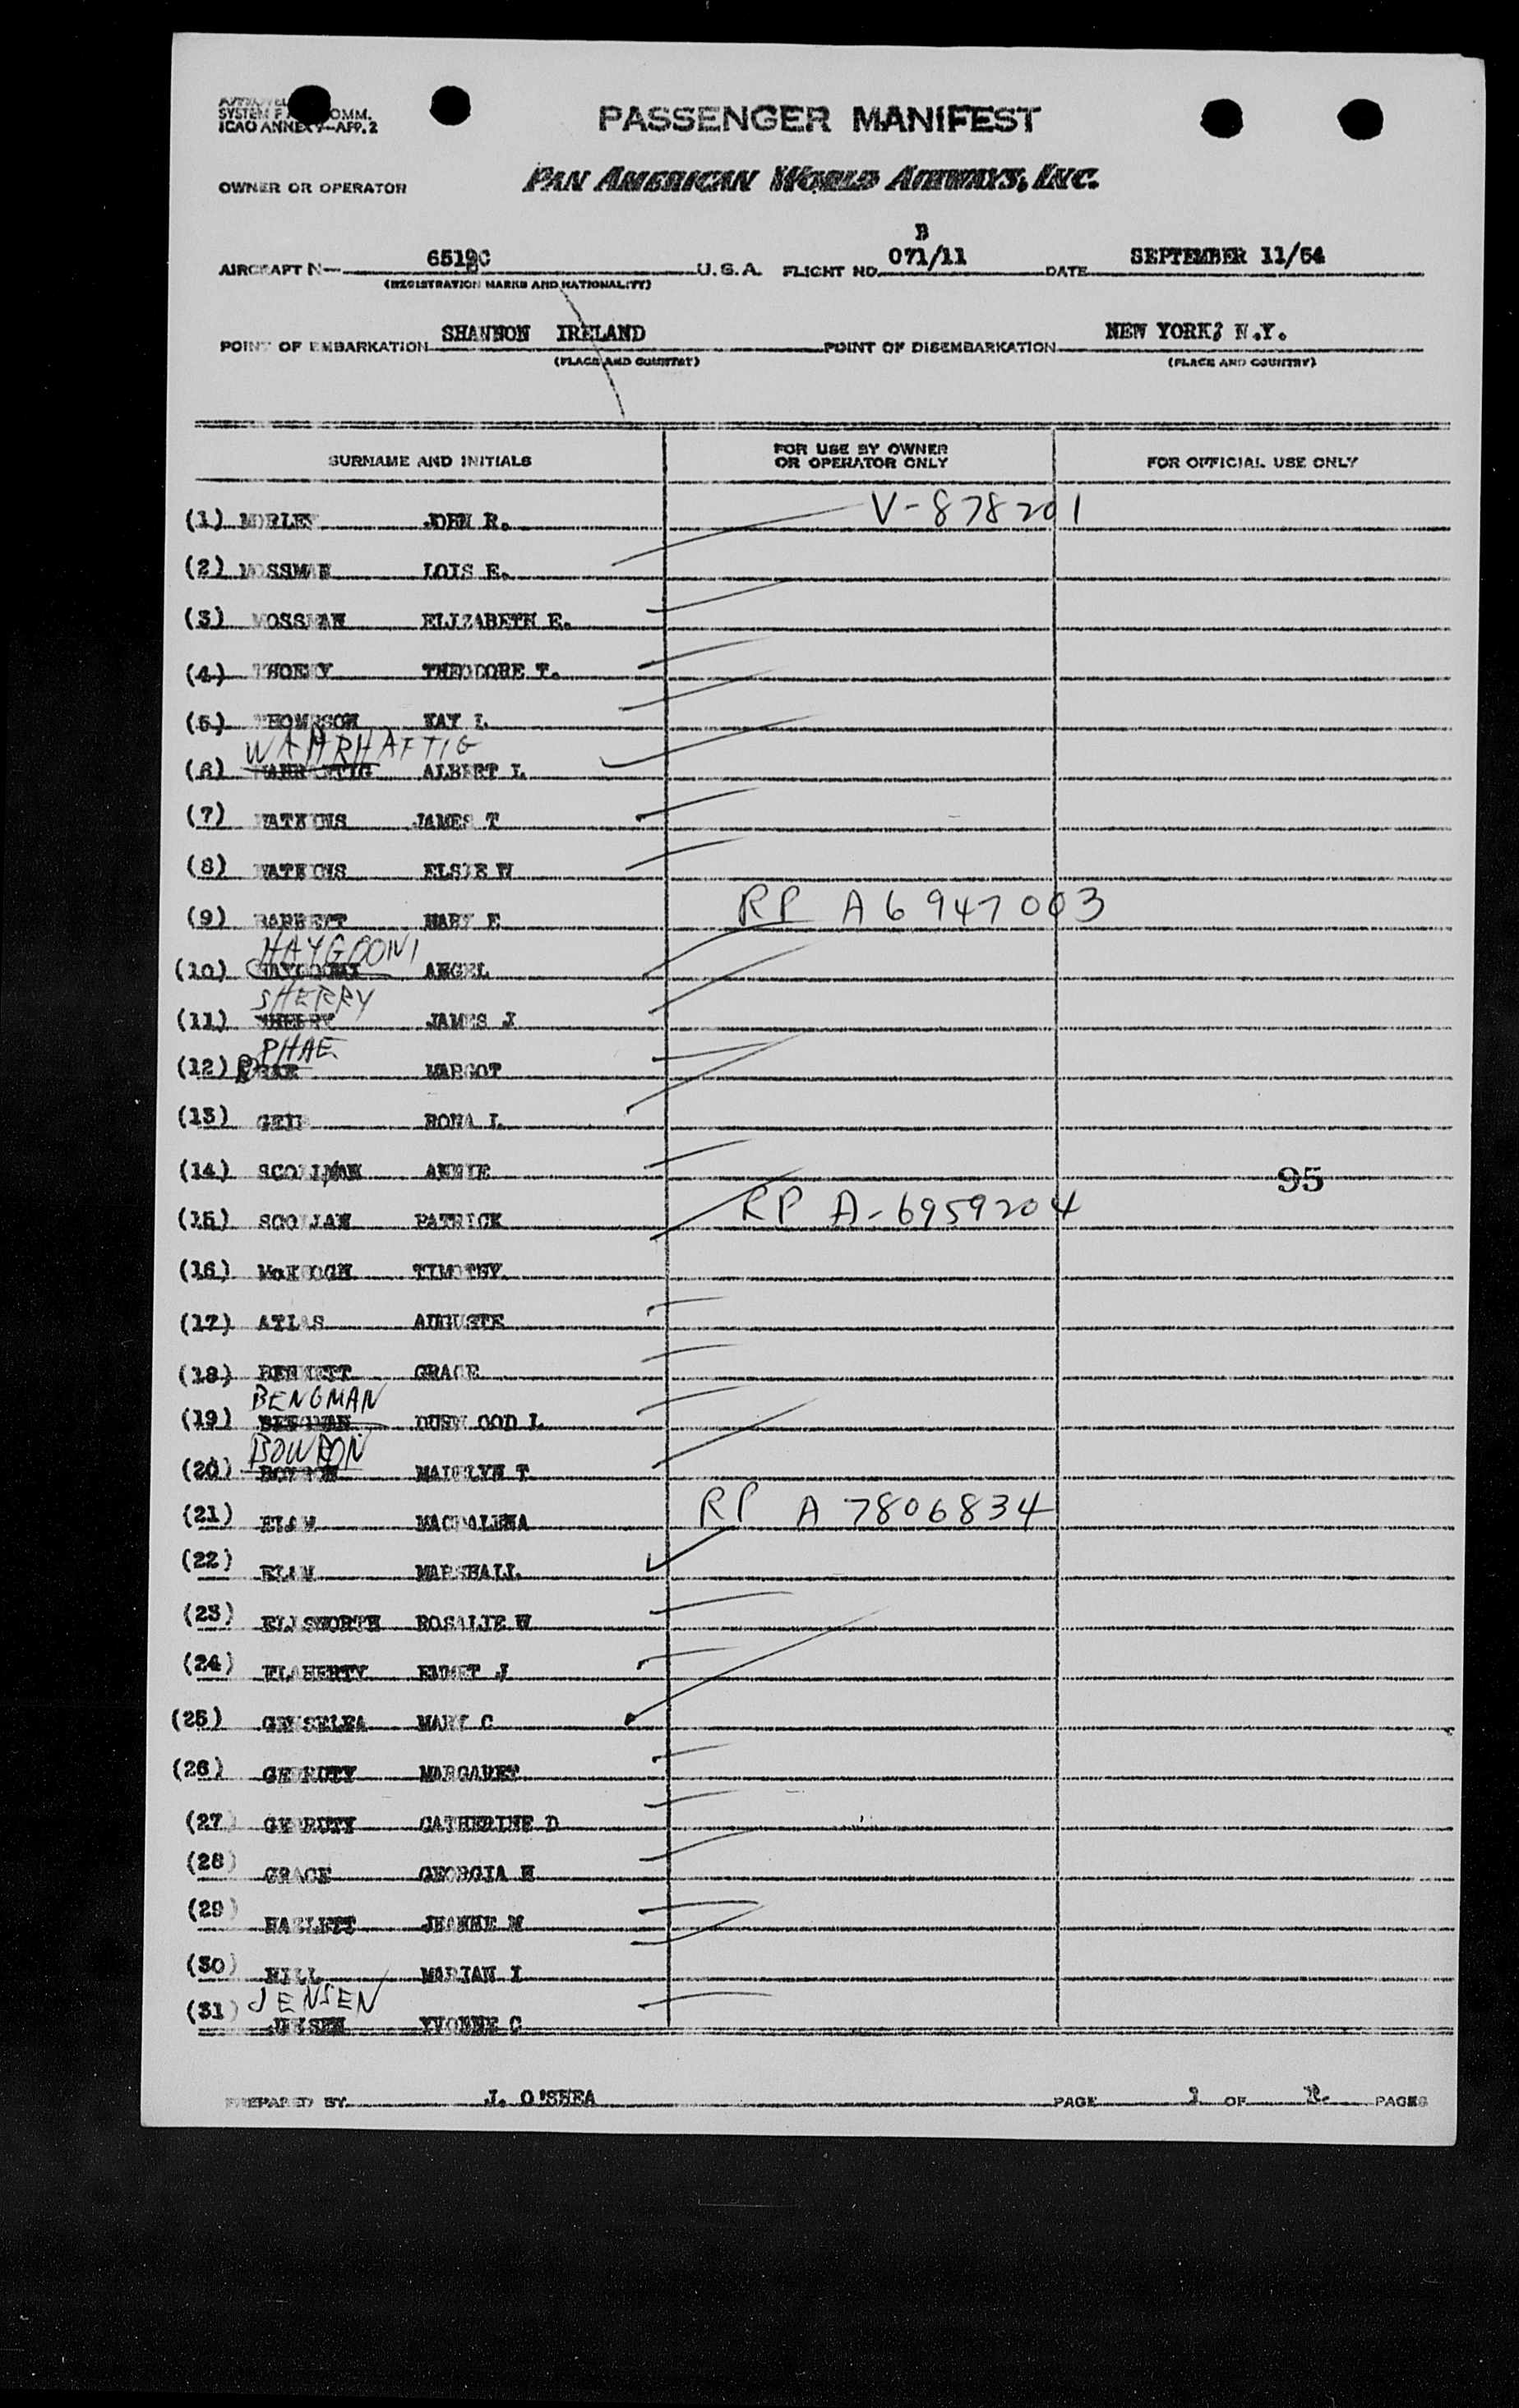 SYSTEM COMM.
ICAO ANNEX 9—APP. 2
PASSENGER MANIFEST
OWNER OR OPERATOR PAN AMERICAN WORLD AIRWAYS, INC.
B
AIRCRAFT N— U.S.A. FLIGHT NO. 071/11 DATE SEPTEMBER 11/54
(REGISTRATION MARKS AND NATIONALITY)
POINT OF EMBARKATION SHANNON IRELAND POINT OF DISEMBARKATION NEW YORK? N.Y.
(PLACE AND COUNTRY) (PLACE AND COUNTRY)
SURNAME AND INITIALS FOR USE BY OWNER OR OPERATOR ONLY FOR OFFICIAL USE ONLY
(1) MORLEY JOHN R. V-878201
(2) MOSSMAN LOIS E.
(3) MOSSMAN ELIZABETH E.
(4) THEODORE T.
(5) THOMPSON KAY L
WAHRHAFTIG
(6) ALBERT L
(7) WATKINS JAMES T
(8) WATKINS ELSIE W
(9) BARRETT MARY E RP A6947003
HAYGOONI
(10) ANGEL
SHERRY
(11) SHERRY JAMES J
PHAE
(12) MARGOT
(13) RONA L
(14) ANNIE 95
(15) SCOLLAN PATRICK RP A-6959204
(16) TIMOTHY
(17) ATLAS AUGUSTE
(18) BENNETT GRACE
BENGMAN
(19) DURWOOD L
BOWRON
(20) MADELYN T
(21) ELAM MAGDALENA RP A 7806834
(22) ELAM MARSHALL
(23) ELLSWORTH ROSALIE W
(24) FLAHERTY EMMET J
(25) MARY C
(26) GERRITY MARGARET
(27) GERRITY CATHERINE D
(28) GRACE GEORGIA H
(29) HAZLETT JEANNE M
(30) HILL MARIAN I
JENSEN
(31) JENSEN YVONNE C
PREPARED BY J. O'SHEA PAGE 1 OF PAGES